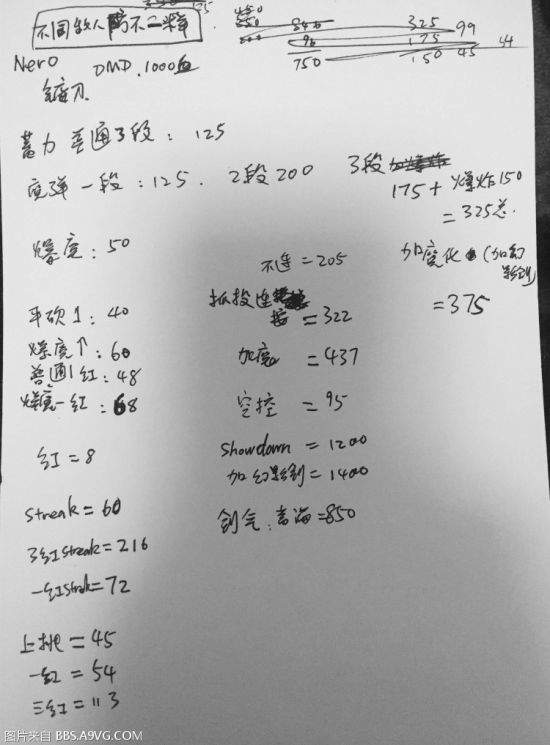 不同敌人防不一样
325 99
175
96 45 44
750 150
Nero DMD.1000血
蓄力 普通3段：125
魔弹一段：125. 2段200 3段
175+爆炸150
=325总.
爆魔：50
不连=205
加魔化 (加幻影剑)
=375
平砍1：40
抓投连
=322
爆魔1：60
加魔=437
普通1红：48
爆魔一红：68
空控=95
红=8
showdown=1200
加幻影剑=1400
streak=60
剑气：青海=850
3红streak=216
一红streak=72
上挑=45
一红=54
三红=113
图片来自 BBS.A9VG.COM